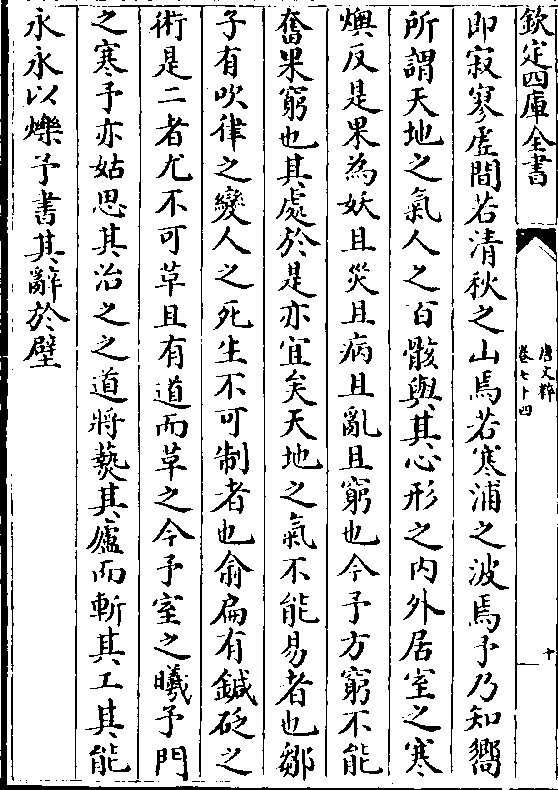 欽定四庫全書
唐文粹
卷七十四
十
即寂寥虛間若清秋之山焉若寒浦之波焉予乃知嚮
所謂天地之氣人之百骸與其心形之内外居室之寒
燠反是果為妖且災且病且亂且窮也今予方窮不能
奮果窮也其處於是亦宜矣天地之氣不能易者也鄒
子有吹律之變人之死生不可制者也俞扁有鍼砭之
術是二者尤不可草且有道而草之今予室之曦予門
之寒予亦姑思其治之之道將爇其廬而斬其工其能
永永以爍予書其辭於壁